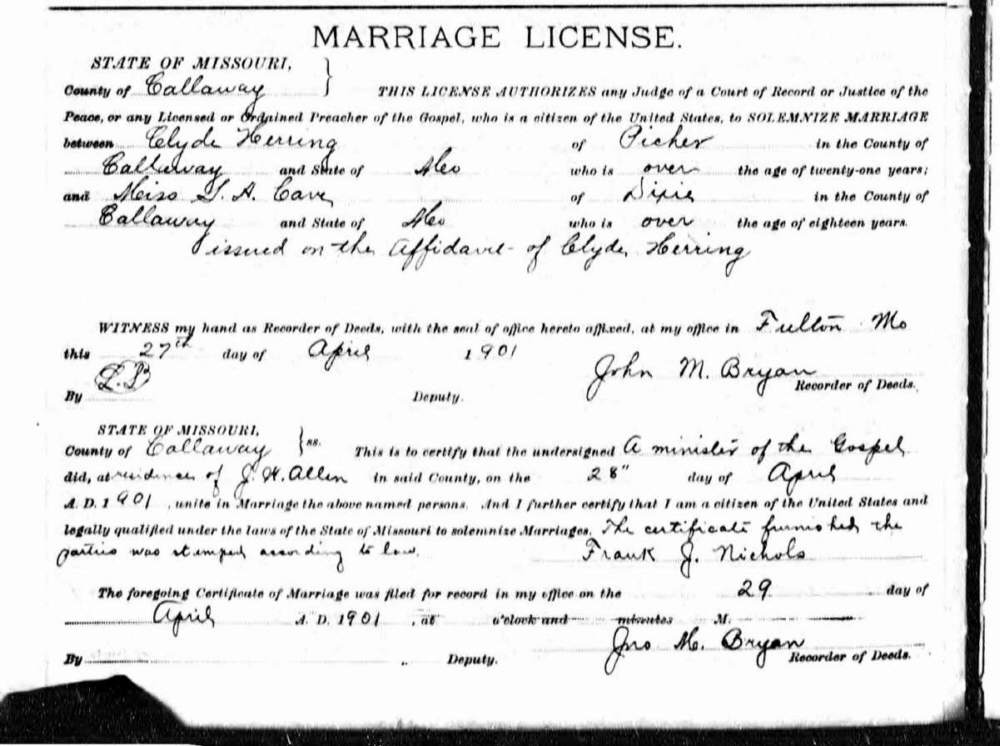 MARRIAGE LICENSE.
STATE OF MISSOURI,
County of Callaway } THIS LICENSE AUTHORIZES any Judge of a Court of Record or Justice of the
Peace, or any Licensed or Ordained Preacher of the Gospel, who is a citizen of the United States, to SOLEMNIZE MARRIAGE
between Clyde Herring of Picher in the County of
Callaway and State of Mo who is over the age of twenty-one years;
and Miss S. A. Cave of Dixie in the County of
Callaway and State of Mo who is over the age of eighteen years.
issued on the Affidavit of Clyde Herring
WITNESS my hand as Recorder of Deeds, with the seal of office hereto affixed, at my office in Fulton Mo
this 27th day of April 1901
John M. Bryan
By Deputy. Recorder of Deeds.
STATE OF MISSOURI,
County of Callaway } ss. This is to certify that the undersigned A minister of the Gospel
did, at residence of J. H. Allen in said County, on the 28" day of April
A. D. 1901, unite in Marriage the above named persons. And I further certify that I am a citizen of the United States and
legally qualified under the laws of the State of Missouri to solemnize Marriages. The certificate furnished the
parties was stamped according to law. Frank J. Nichols
The foregoing Certificate of Marriage was filed for record in my office on the 29 day of
April A. D. 1901, at o'clock and minutes M.
Jno M. Bryan
By Deputy. Recorder of Deeds.